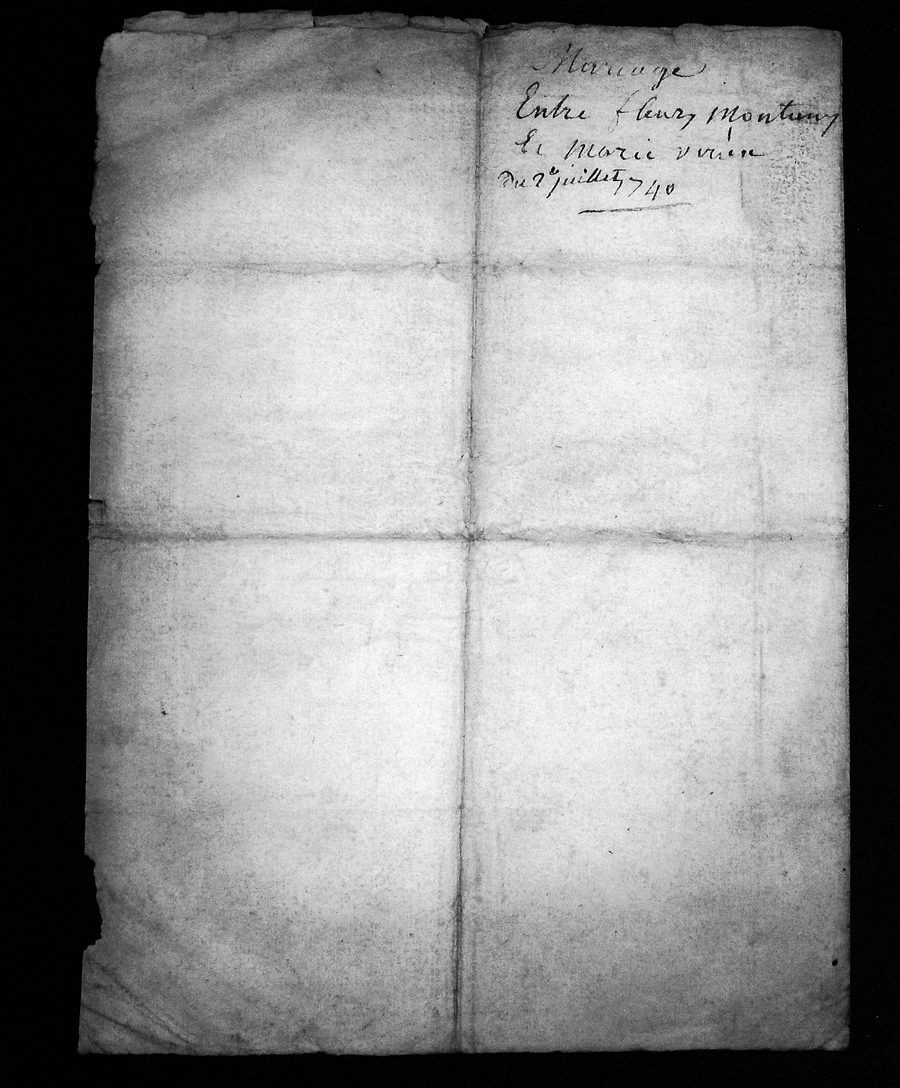 Mariage
Entre fleury Montuny
Et Marie
Du 2e juillet 1740